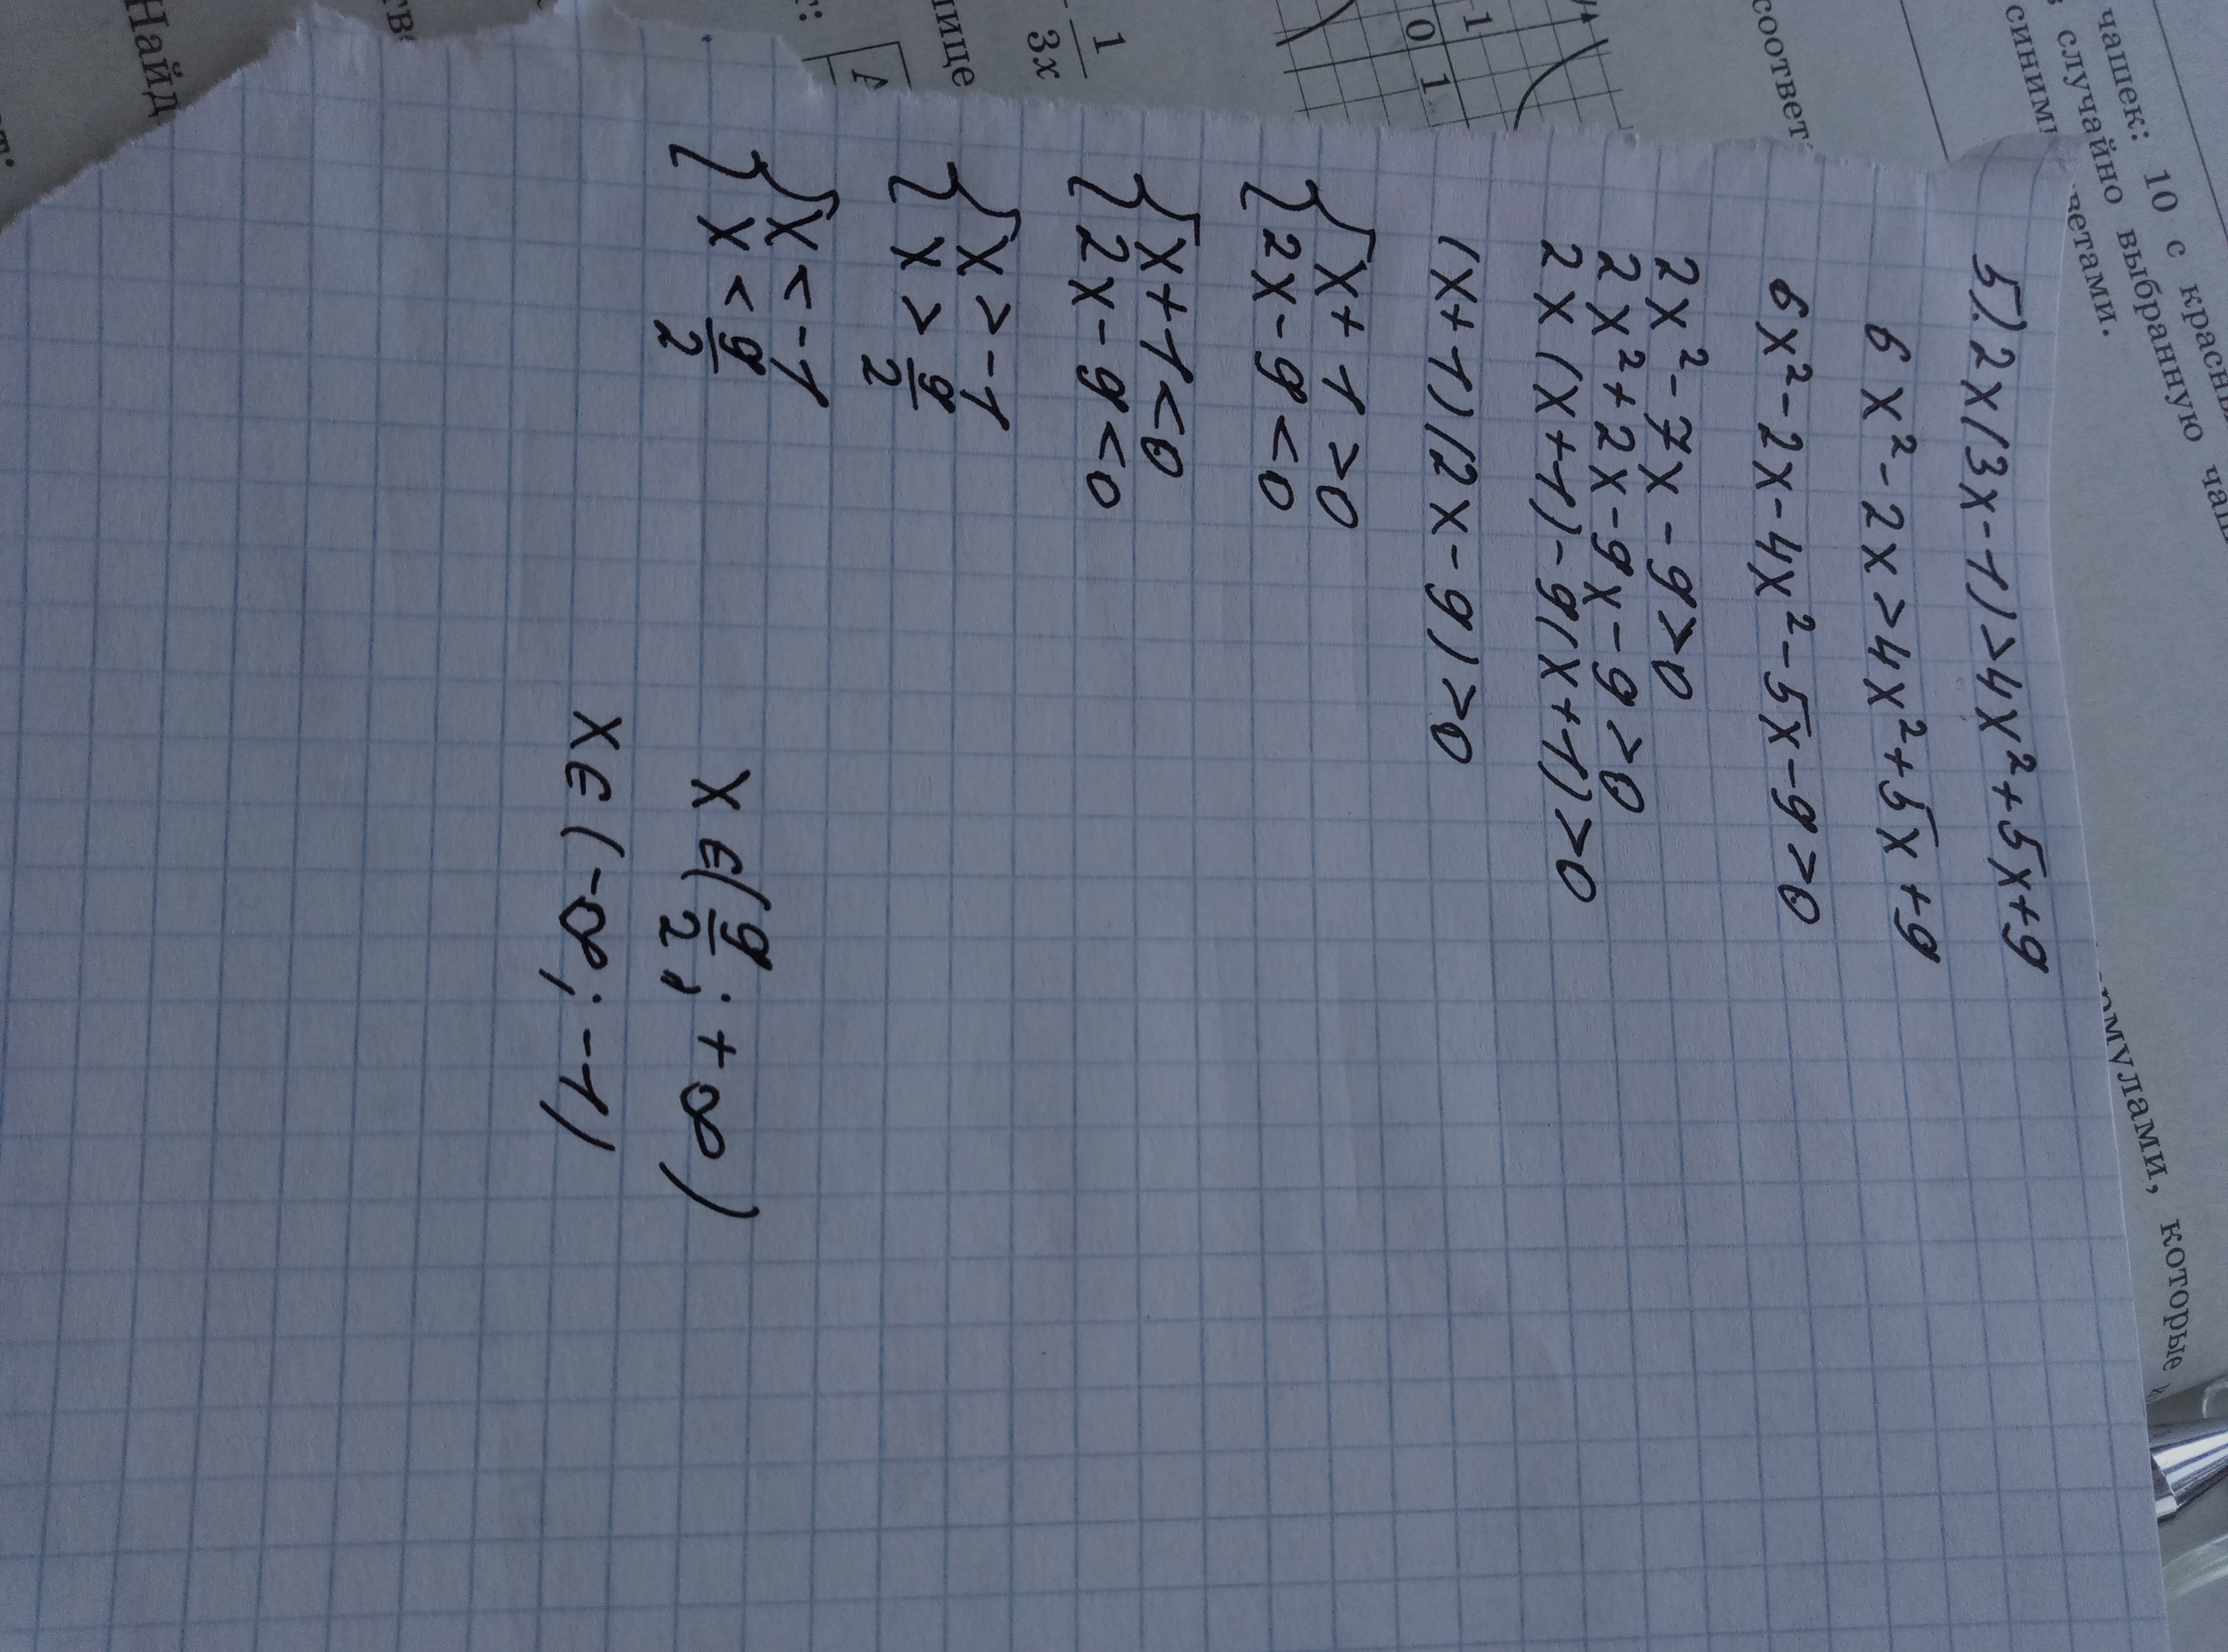 5.) 2x(3x-1)>4x²+5x+9
6x²-2x>4x²+5x+9
6x²-2x-4x²-5x-9>0
2x²-7x-9>0
2x²+2x-9x-9>0
2x(x+1)-9(x+1)>0
(x+1)(2x-9)>0
{x+1>0
{2x-9<0
{x+1<0
{2x-9<0
{x>-1
{x>9/2
{x<-1
{x<9/2
x∈(9/2;+∞)
x∈(-∞;-1)
чашек: 10 с красны
случайно выбранную ча
синим
ветами.
соответ
1
0 1
1
3x
нице
А
Найд
рмулами, которые